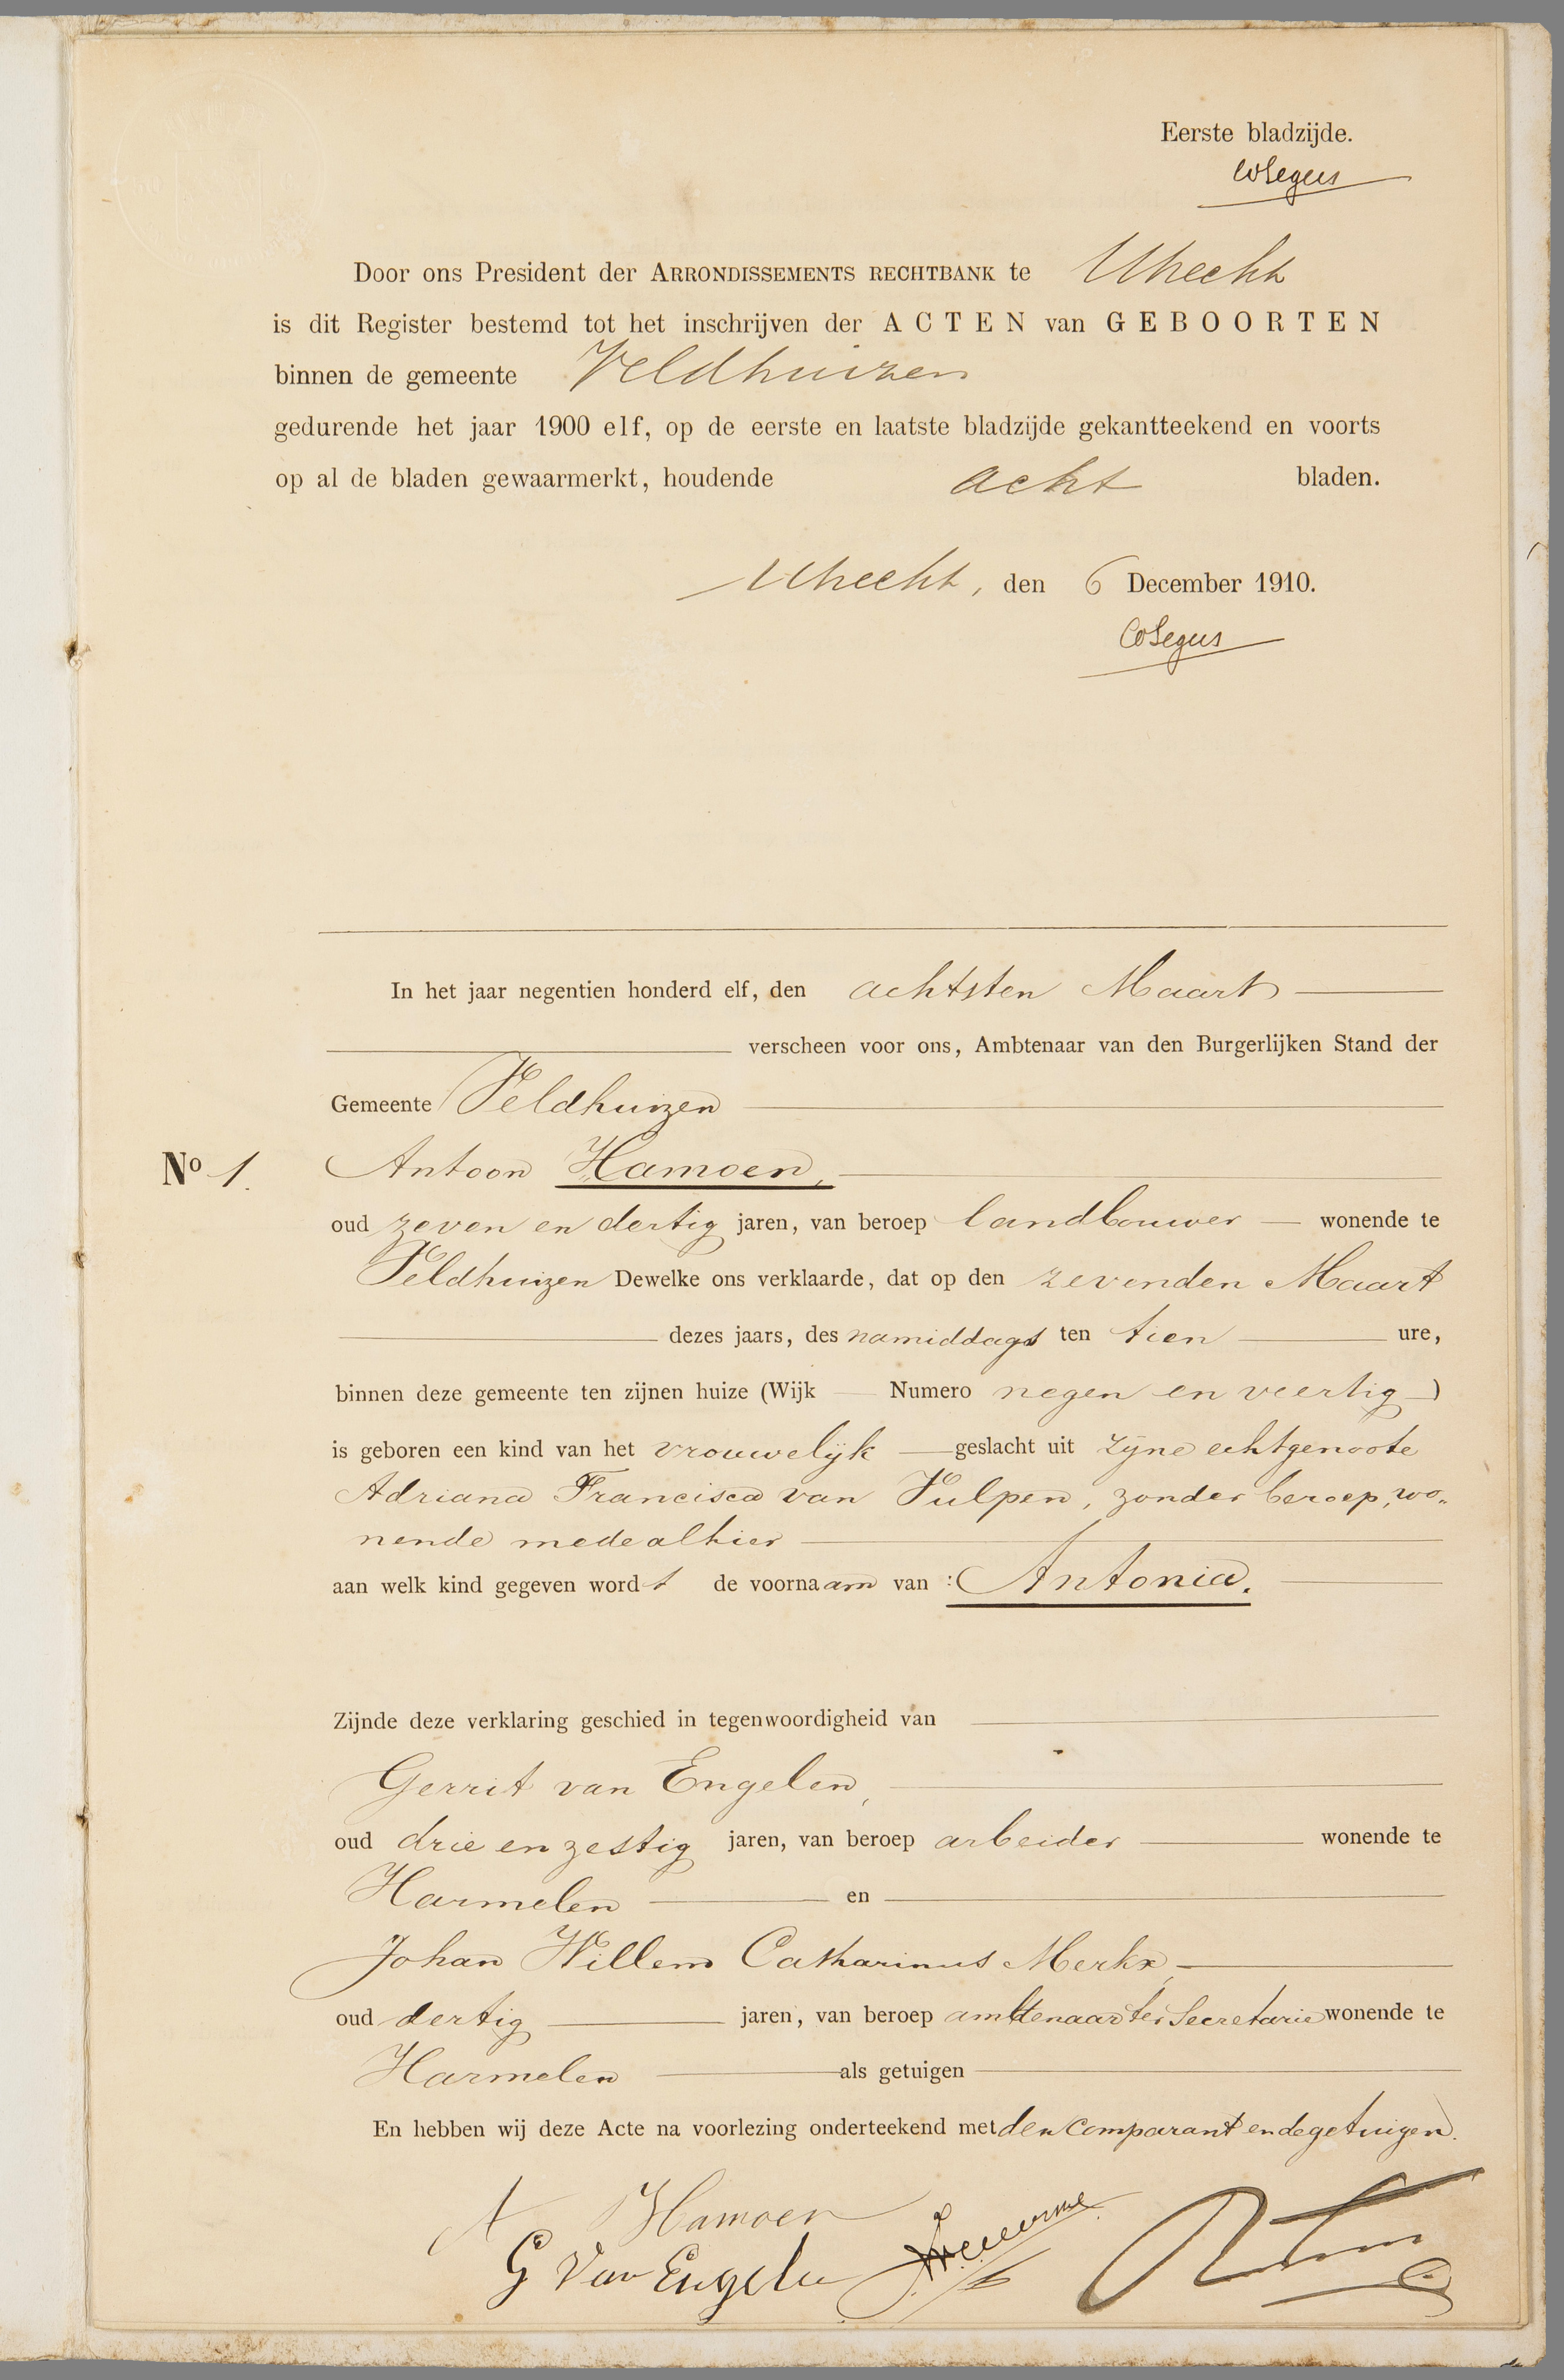 Eerste bladzijde.
Door ons President der ARRONDISSEMENTS RECHTBANK te Utrecht
is dit Register bestemd tot het inschrijven der ACTEN van GEBOORTEN
binnen de gemeente Veldhuizen
gedurende het jaar 1900 elf, op de eerste en laatste bladzijde gekantteekend en voorts
op al de bladen gewaarmerkt, houdende acht bladen.
Utrecht, den 6 December 1910.
In het jaar negentien honderd elf, den achtsten Maart
verscheen voor ons, Ambtenaar van den Burgerlijken Stand der
Gemeente Veldhuizen
No 1. Antoon Hamoen,
oud zeven en dertig jaren, van beroep landbouwer wonende te
Veldhuizen Dewelke ons verklaarde, dat op den zevenden Maart
dezes jaars, des namiddags ten tien ure,
binnen deze gemeente ten zijnen huize (Wijk — Numero negen en veertig)
is geboren een kind van het vrouwelijk geslacht uit zijne echtgenoote
Adriana Francisca van Vulpen, zonder beroep, wo„
nende mede alhier
aan welk kind gegeven wordt de voornaam van : Antonia.
Zijnde deze verklaring geschied in tegenwoordigheid van
Gerrit van Engelen,
oud drie en zestig jaren, van beroep arbeider wonende te
Harmelen en
Johan Willem Catharinus Merkx,
oud dertig jaren, van beroep ambtenaar ter Secretarie wonende te
Harmelen als getuigen
En hebben wij deze Acte na voorlezing onderteekend met den comparant en de getuigen.
A Hamoen
G Van Engelen